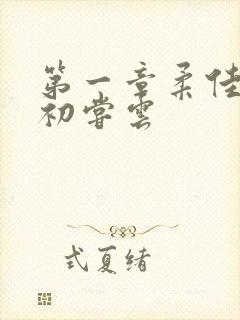 第一章柔佳
初尝云
式夏绪